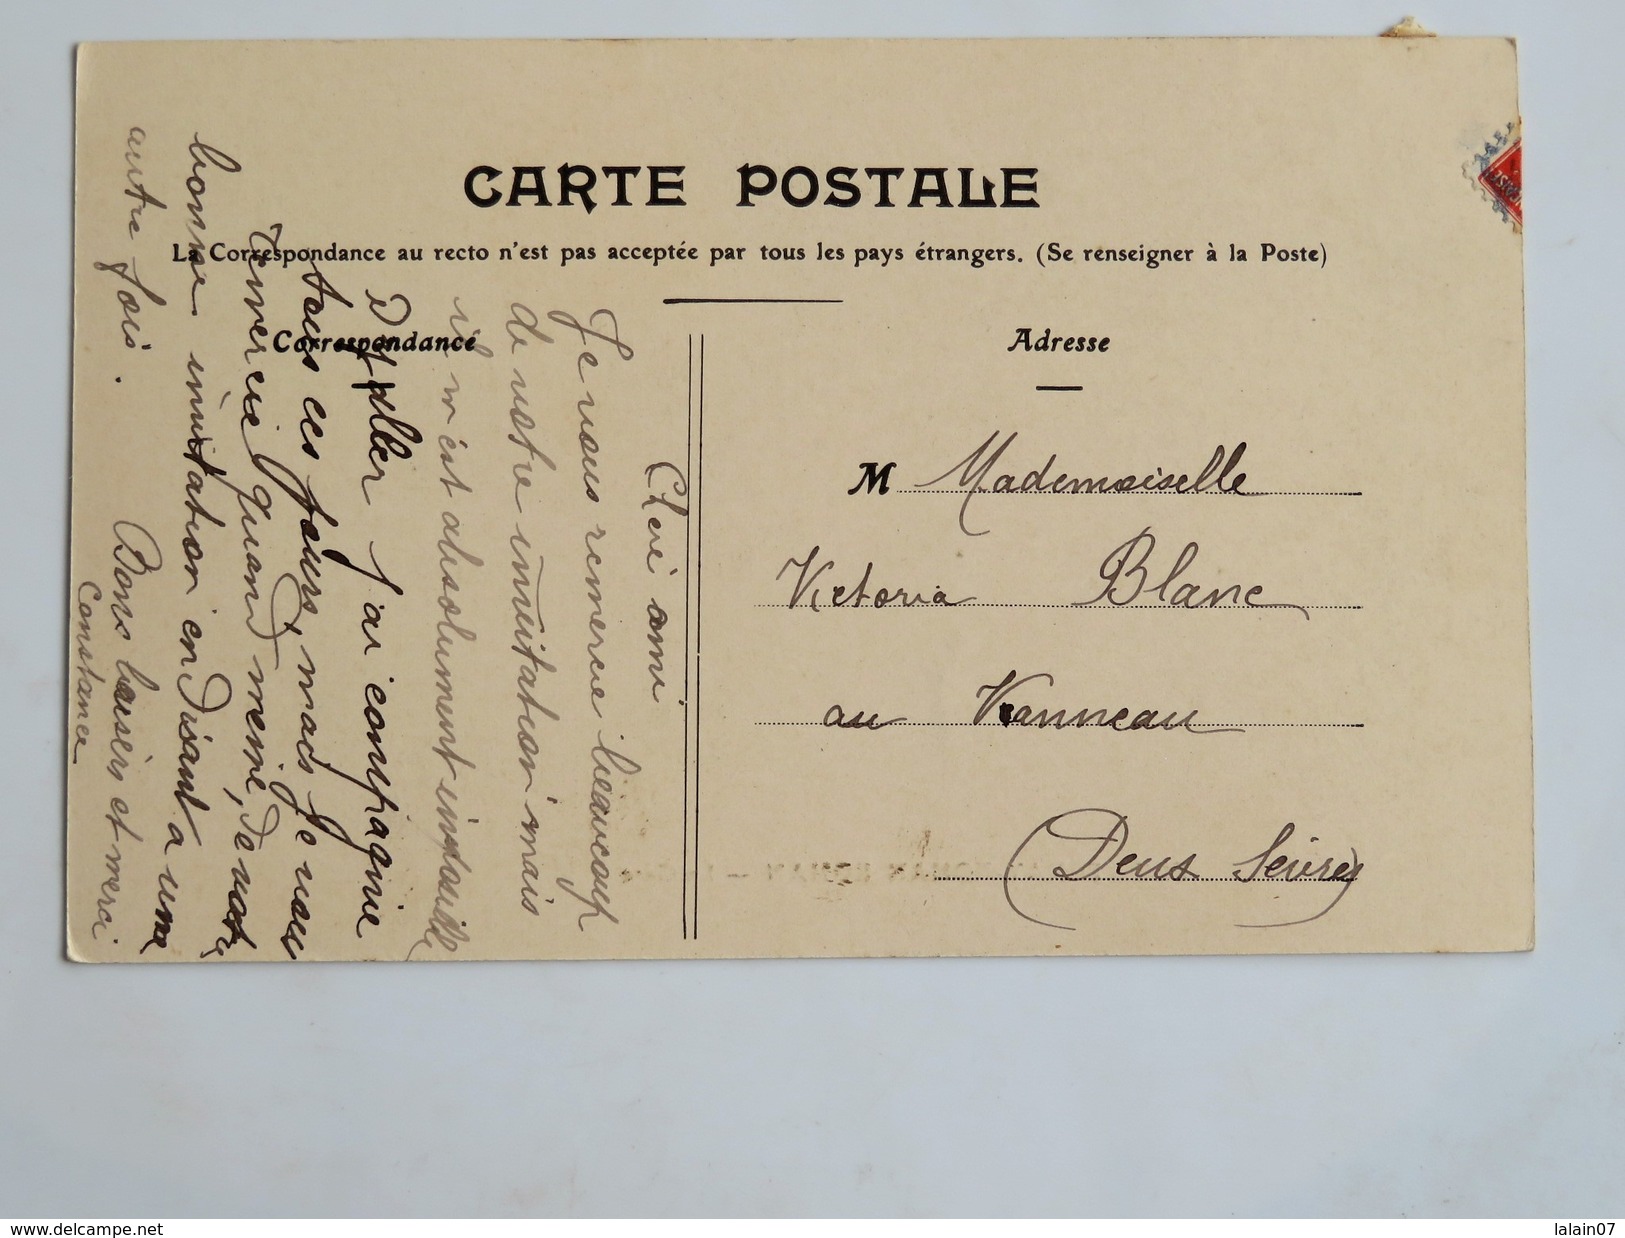 CARTE POSTALE
La Correspondance au recto n'est pas acceptée par tous les pays étrangers. (Se renseigner à la Poste)
Correspondance
Cher ami
Je vous remercie beaucoup
de votre invitation mais
il m'est absolument impossible
D'aller j'ai compagnie
tous ces jours, mais je vous
remercie quand meme, de votre
bonne invitation en disant a une
autre fois.
Bons baisers et merci
Constance
Adresse
M Mademoiselle
Victoria Blanc
au Vanneau
(Deux Sèvres)
www.delcampe.net
lalain07